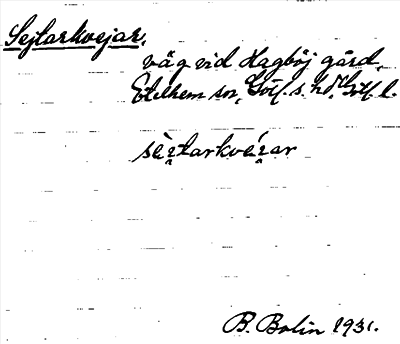 Sejlarkvejar.
väg vid Hagböj gård,
Etelhem sn, Gotl. s. hd, Gotl. l.
sè̯i̯larkvé̯i̯ar
B. Bolin 1931.